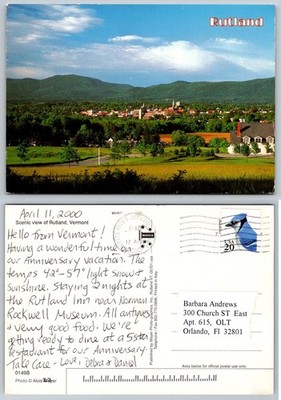 Rutland
Scenic view of Rutland, Vermont
April 11, 2000
Hello from Vermont!
Having a wonderful time on
our Anniversary vacation. The
temps 42°-57° light snow &
sunshine. Staying nights at
the Rutland Inn near Norman
Rockwell Museum. All antiques
& very good food. We're
getting ready to dine at a 55th
restaurant for our Anniversary.
Take Care - Love, Debra & Daniel
P149B
USA
20
Barbara Andrews
300 Church ST East
Apt. 615, OLT
Orlando, Fl 32801
Area below for official postal use only.